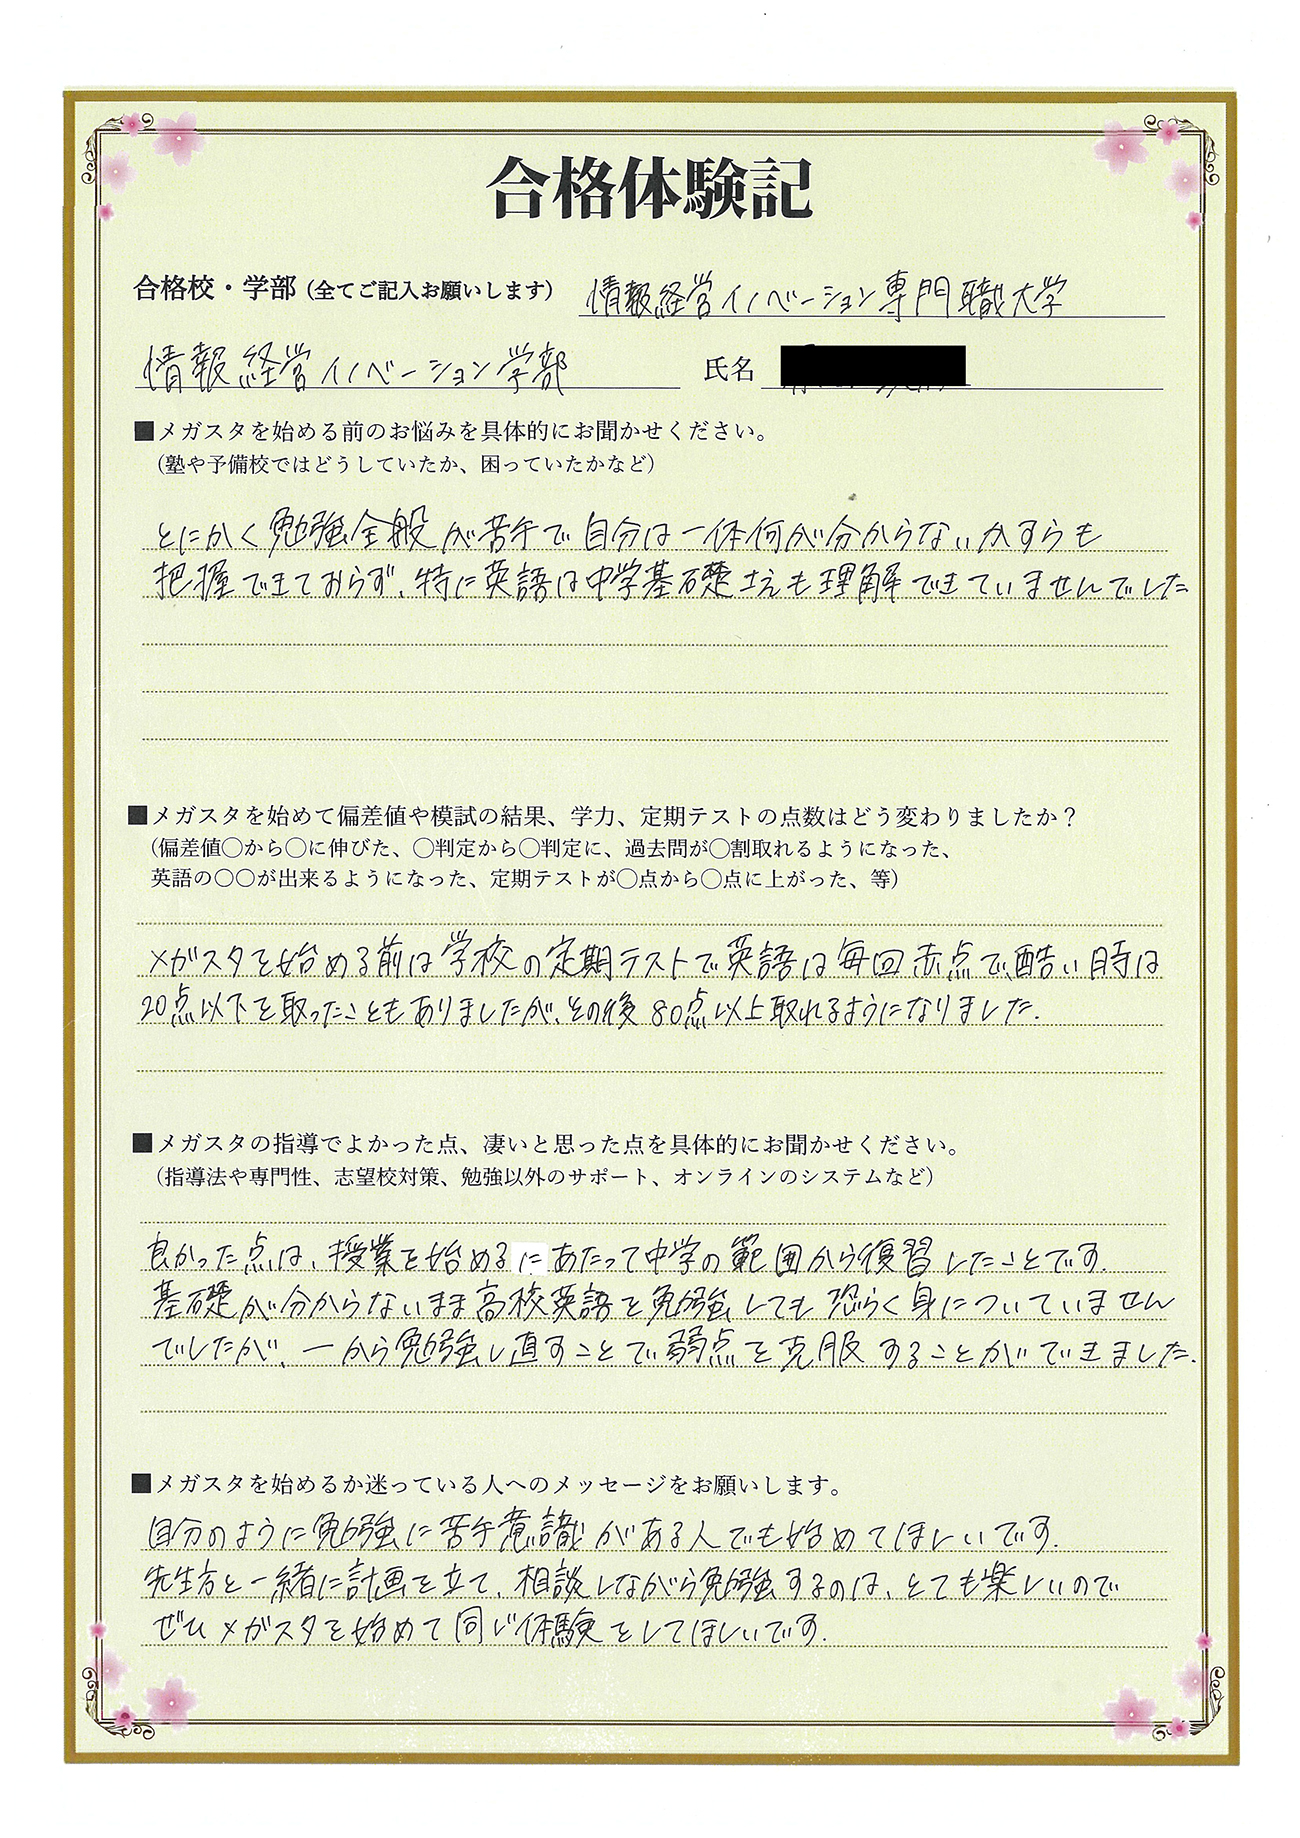 合格体験記
合格校・学部(全てご記入お願いします) 情報経営イノベーション専門職大学
情報経営イノベーション学部 氏名
■メガスタを始める前のお悩みを具体的にお聞かせください。
(塾や予備校ではどうしていたか、困っていたかなど)
とにかく勉強全般が苦手で自分は一体何が分からないかすらも
把握できておらず、特に英語は中学基礎すらも理解できていませんでした
■メガスタを始めて偏差値や模試の結果、学力、定期テストの点数はどう変わりましたか？
(偏差値〇から〇に伸びた、〇判定から〇判定に、過去問が〇割取れるようになった、
英語の〇〇が出来るようになった、定期テストが〇点から〇点に上がった、等)
メガスタを始める前は学校の定期テストで英語は毎回赤点で、酷い時は
20点以下を取ったこともありましたが、その後80点以上取れるようになりました.
■メガスタの指導でよかった点、凄いと思った点を具体的にお聞かせください。
(指導法や専門性、志望校対策、勉強以外のサポート、オンラインのシステムなど)
良かった点は、授業を始めるにあたって中学の範囲から復習したことです.
基礎が分からないまま高校英語を勉強しても恐らく身についていません
でしたが、一から勉強し直すことで弱点を克服することができました.
■メガスタを始めるか迷っている人へのメッセージをお願いします。
自分のように勉強に苦手意識がある人でも始めてほしいです.
先生方と一緒に計画を立て、相談しながら勉強するのは、とても楽しいので
ぜひメガスタを始めて同じ体験をしてほしいです.